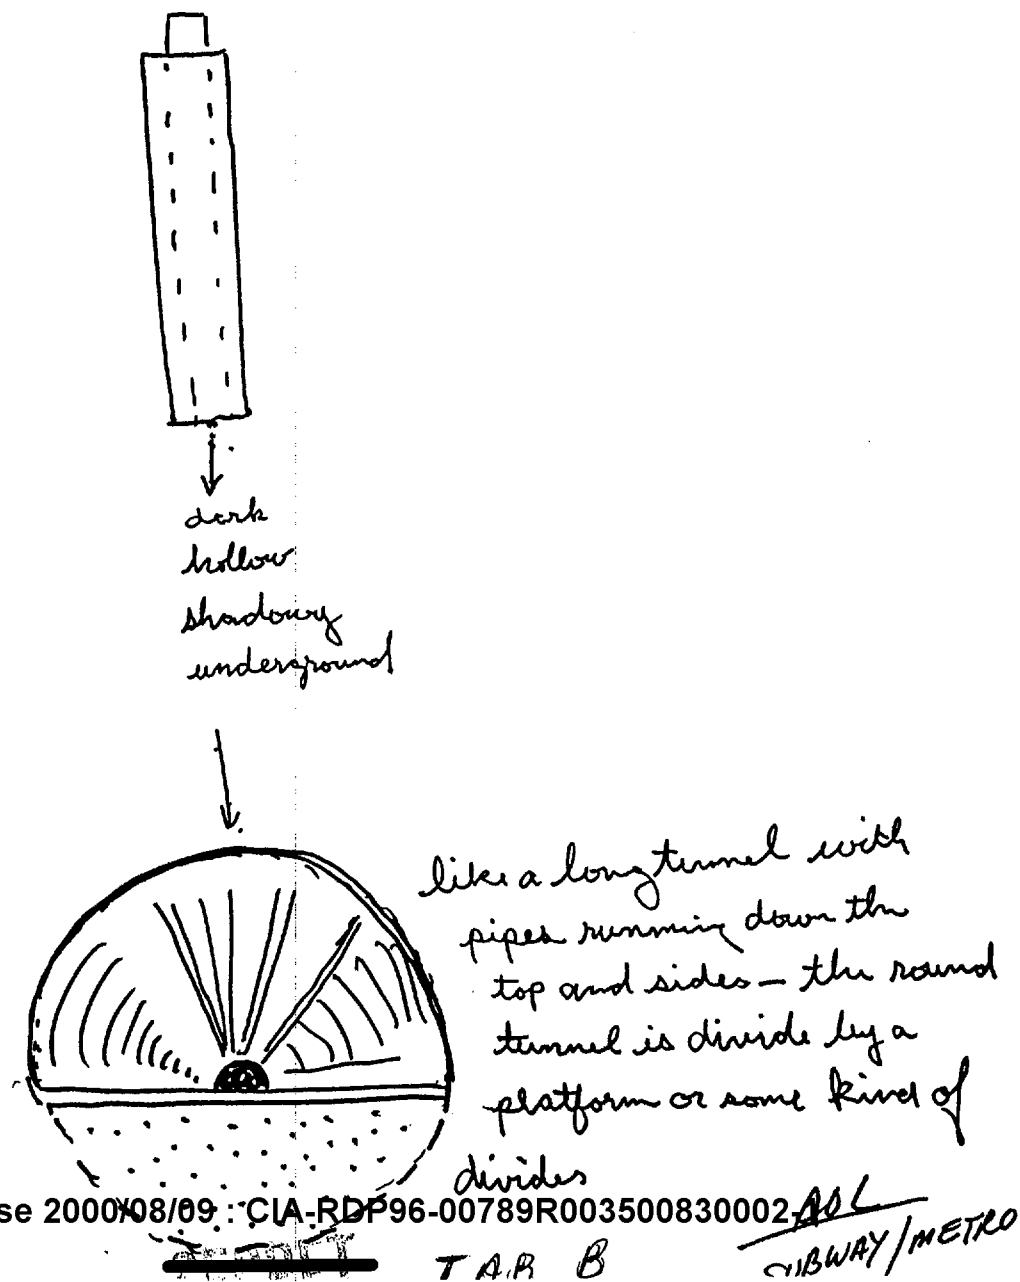 dark
hollow
shadowy
underground
like a long tunnel with
pipes running down the
top and sides — the round
tunnel is divide by a
platform or some kind of
divides
se 2000/08/09 : CIA-RDP96-00789R003500830002-
AOL
SUBWAY/METRO
SECRET
TAB B